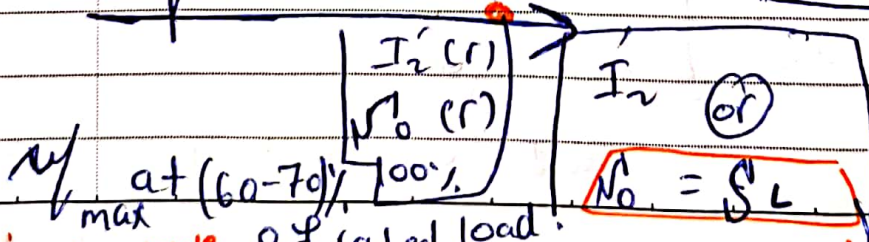 I₂' (r)
S₀ (r)
100%
I₂' or
S₀ = S_L
η max at (60-70)%
of rated load.